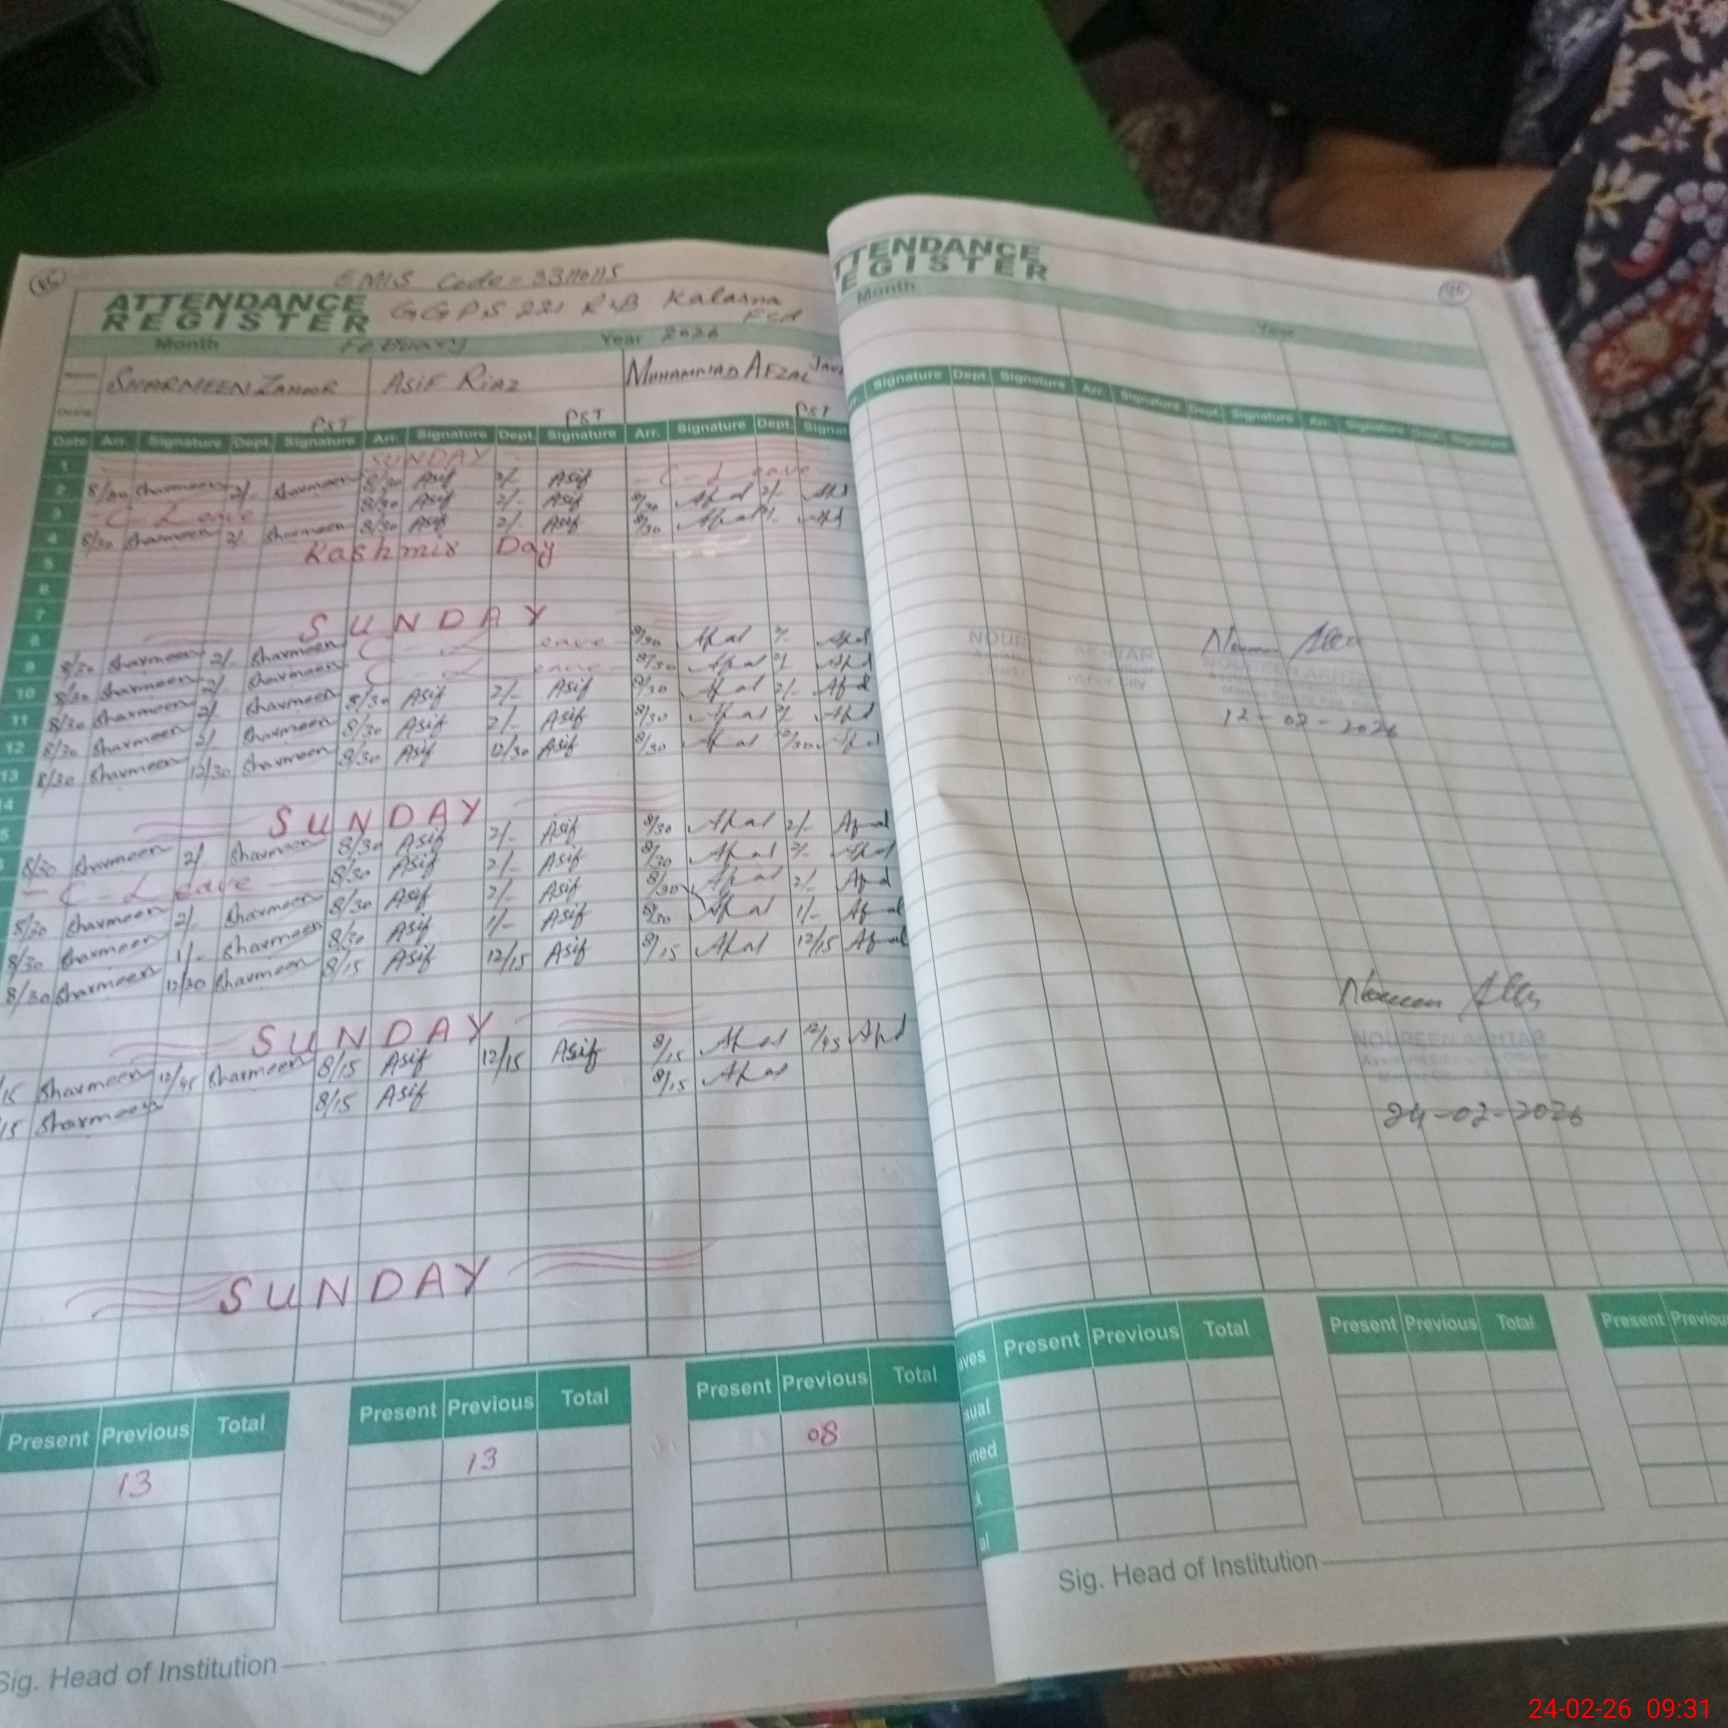 EMIS Code = 33110115
ATTENDANCE
REGISTER
GGPS 221 RB Kalasna
Fsd
Month February Year 2026
SHARMEEN ZAHOOR ASIF RIAZ MUHAMMAD AFZAL
PST PST PST
Date Arr. Signature Dept. Signature Arr. Signature Dept. Signature Arr. Signature Dept. Signature
1 SUNDAY
2 8/30 Sharmeen 2/- Sharmeen 8/30 Asif 2/- Asif - C - Leave
3 C - Leave 8/30 Asif 2/- Asif 8/30 Afzal 2/- Afzal
4 8/30 Sharmeen 2/- Sharmeen 8/30 Asif 2/- Asif 8/30 Afzal 2/- Afzal
5 Kashmir Day
6
7
8 SUNDAY
9 8/30 Sharmeen 2/- Sharmeen C - Leave 8/30 Afzal 2/- Afzal
10 8/30 Sharmeen 2/- Sharmeen C - Leave 8/30 Afzal 2/- Afzal
11 8/30 Sharmeen 2/- Sharmeen 8/30 Asif 2/- Asif 8/30 Afzal 2/- Afzal
12 8/30 Sharmeen 2/- Sharmeen 8/30 Asif 2/- Asif 8/30 Afzal 2/- Afzal
13 8/30 Sharmeen 12/30 Sharmeen 8/30 Asif 12/30 Asif 8/30 Afzal Afzal
SUNDAY
8/30 Sharmeen 2/ Sharmeen 8/30 Asif 2/- Asif 8/30 Afzal 2/- Afzal
- C - Leave 8/30 Asif 2/- Asif 8/30 Afzal 2/- Afzal
8/30 Sharmeen 2/- Sharmeen 8/30 Asif 2/- Asif 8/30 Afzal 2/- Afzal
8/30 Sharmeen 1/- Sharmeen 8/30 Asif 1/- Asif 8/30 Afzal 1/- Afzal
8/30 Sharmeen 12/30 Sharmeen 8/15 Asif 12/15 Asif 8/15 Afzal 12/15 Afzal
SUNDAY
/15 Sharmeen 12/45 Sharmeen 8/15 Asif 12/15 Asif 8/15 Afzal 12/45 Afzal
/15 Sharmeen 8/15 Asif 8/15 Afzal
SUNDAY
Present Previous Total Present Previous Total Present Previous Total
13 13 08
Sig. Head of Institution
TTENDANCE
EGISTER
Month Year
Signature Dept. Signature Arr. Signature Dept. Signature Arr. Signature Dept. Signature
12-02-2026
NOUREEN AKHTAR
24-02-2026
Present Previous Total Present Previous Total Present Previou
Sig. Head of Institution
24-02-26 09:31